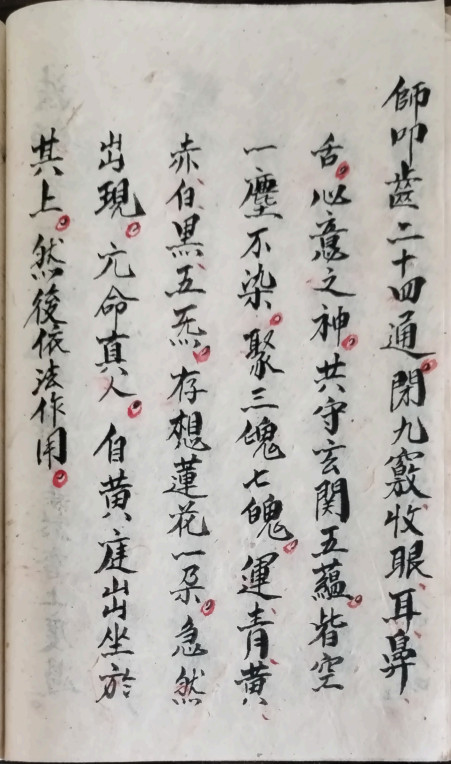 師叩齒二十四通。閉九竅收眼、耳、鼻、
舌。心意之神。共守玄関五蘊。皆空
一塵不染。聚三魂七魄。運青、黄、
赤、白、黒、五炁。存想蓮花一朶。急然
出現。元命真人。自黄庭出坐於
其上。然後依法作用。